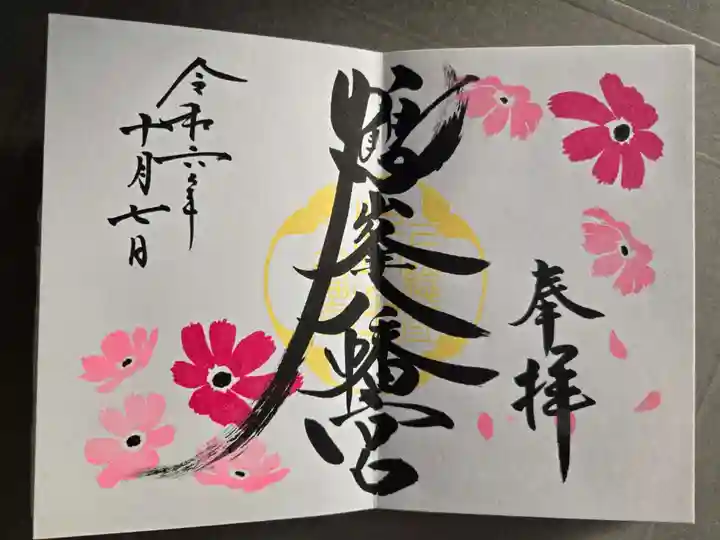 奉拝
鶴峯八幡宮
令和六年
十月七日